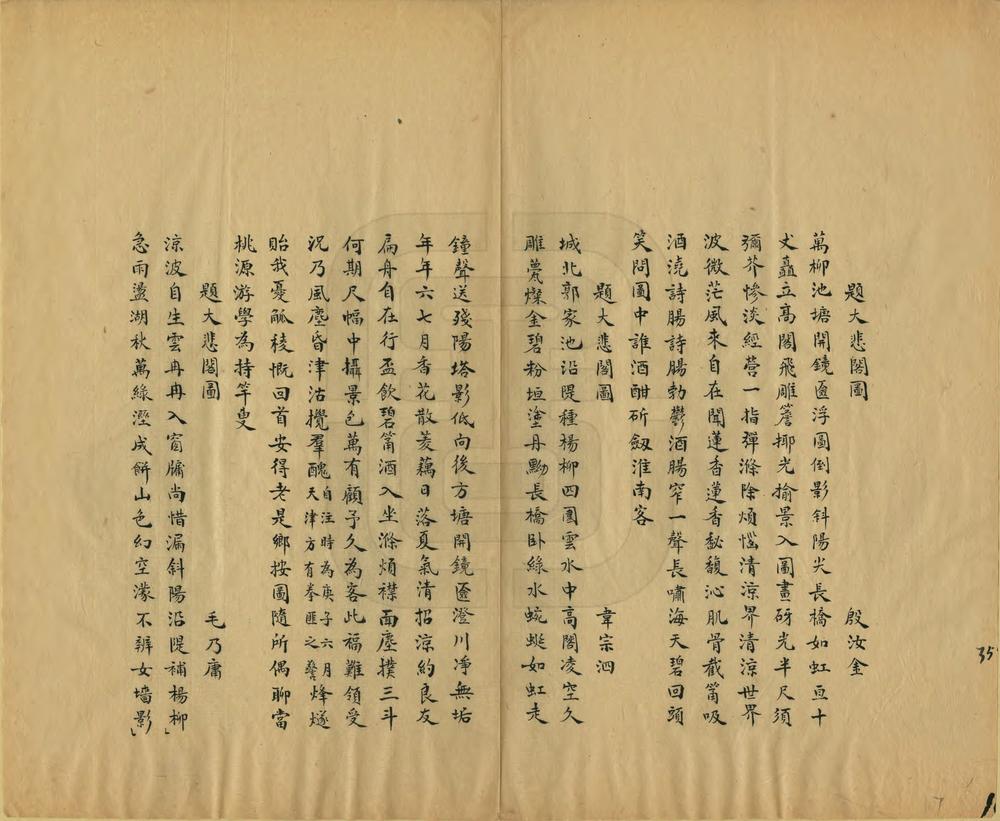 題大悲閣圖　殷汝金
萬柳池塘開鏡匳浮圖倒影斜陽尖長橋如虹亘十
丈矗立高閣飛雕簷揶光揄景入圖畫砑光半尺須
彌芥慘淡經營一指彈滌除煩惱清涼界清涼世界
波微茫風來自在聞蓮香蓮香馝馥沁肌骨截筩吸
酒澆詩腸詩腸勃鬱酒腸窄一聲長嘯海天碧回頭
笑問圖中誰酒酣斫劒淮南客
題大悲閣圖　韋宗泗
城北郭家池沿隄種楊柳四圍雲水中高閣凌空久
雕甍燦金碧粉垣塗丹黝長橋臥綠水蜿蜒如虹走
鐘聲送殘陽塔影低向後方塘開鏡匳澄川凈無垢
年年六七月香花散菱藕日落夏氣清招涼約良友
扁舟自在行盃飲碧筩酒入坐滌煩襟面塵撲三斗
何期尺幅中攝景包萬有顧予久為客此福難領受
況乃風塵昏津沽攪羣醜自注時為庚子六月天津方有拳匪之警烽燧
貽我憂觚稜慨回首安得老是鄉按圖隨所偶聊當
桃源游學為持竿叟
題大悲閣圖　毛乃庸
涼波自生雲冉冉入窗牖尚惜漏斜陽沿隄補楊柳」
急雨盪湖秋萬綠溼成餅山色幻空濛不辨女墻影」
35